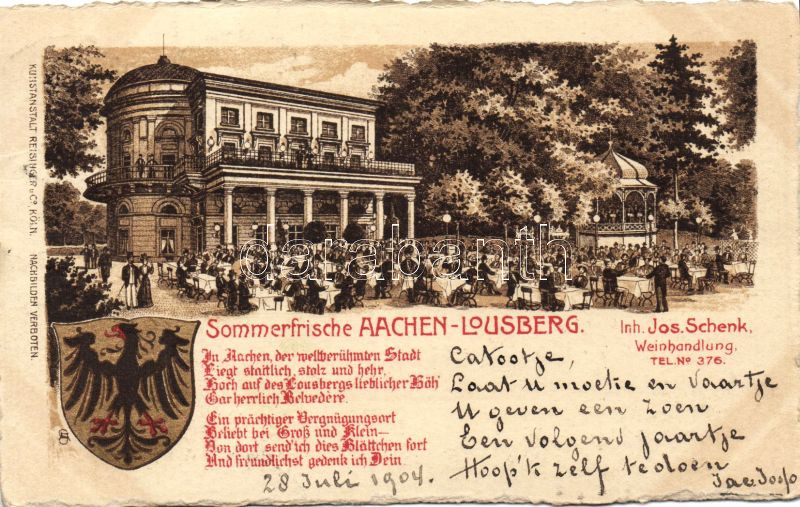 KUNSTANSTALT REISINGER u. Co. KÖLN. NACHBILDEN VERBOTEN.
databanth
Sommerfrische AACHEN-LOUSBERG.
Inh. Jos. Schenk,
Weinhandlung.
TEL. No 376.
In Aachen, der weltberühmten Stadt
Liegt stattlich, stolz und hehr,
Hoch auf des Lousbergs lieblicher Höh'
Gar herrlich Belvedère.
Ein prächtiger Vergnügungsort
Beliebt bei Groß und Klein—
Von dort send' ich dies Blättchen fort
Und freundlichst gedenk ich Dein
28 Juli 1904.
Catootje,
Laat u moeke en vaartje
U geven een zoen
Een volgend jaartje
Hoop'k zelf te doen